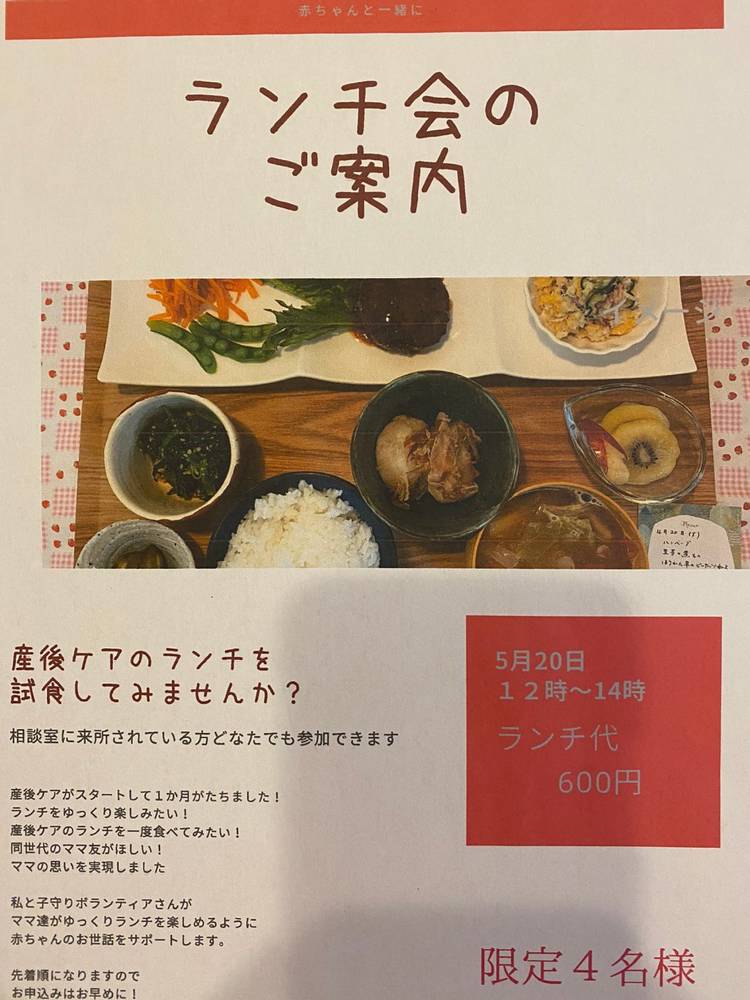 赤ちゃんと一緒に
ランチ会の
ご案内
イメージ
4月20日(火)
ハンバーグ
産後ケアのランチを
試食してみませんか？
相談室に来所されている方どなたでも参加できます
産後ケアがスタートして１か月がたちました！
ランチをゆっくり楽しみたい！
産後ケアのランチを一度食べてみたい！
同世代のママ友がほしい！
ママの思いを実現しました
私と子守りボランティアさんが
ママ達がゆっくりランチを楽しめるように
赤ちゃんのお世話をサポートします。
先着順になりますので
お申込みはお早めに！
5月20日
１２時～14時
ランチ代
600円
限定４名様